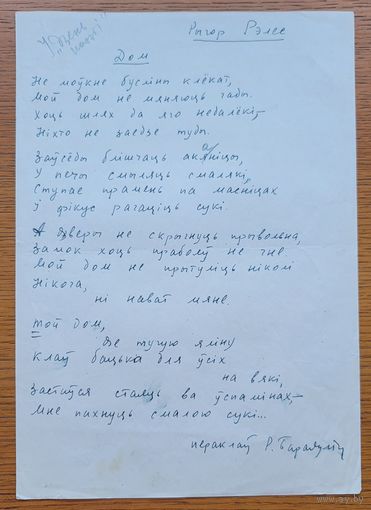 У "Дзень
паэзіі"
Рыгор Рэлес
Дом
Не моўкне бусліны клёкат,
Мой дом не мяняюць гады.
Хоць шлях да яго недалёкі,—
Ніхто не заедзе туды.
Заўсёды блішчаць аканіцы,
У печы смыляць смалякі,
Ступае прамень па масніцах
І фікус рагаціць сукі.
А дзверы не скрыгнуць прывольна,
Замок хоць прабою не гне.
Мой дом не прытуліць ніколі
Нікога,
ні нават мяне.
Той дом,
Дзе тугую яліну
Клаў бацька для ўсіх
на вякі,
Застаўся стаяць ва ўспамінах,—
Мне пахнуць смалою сукі...
пераклаў Р. Барадулін
ay.by